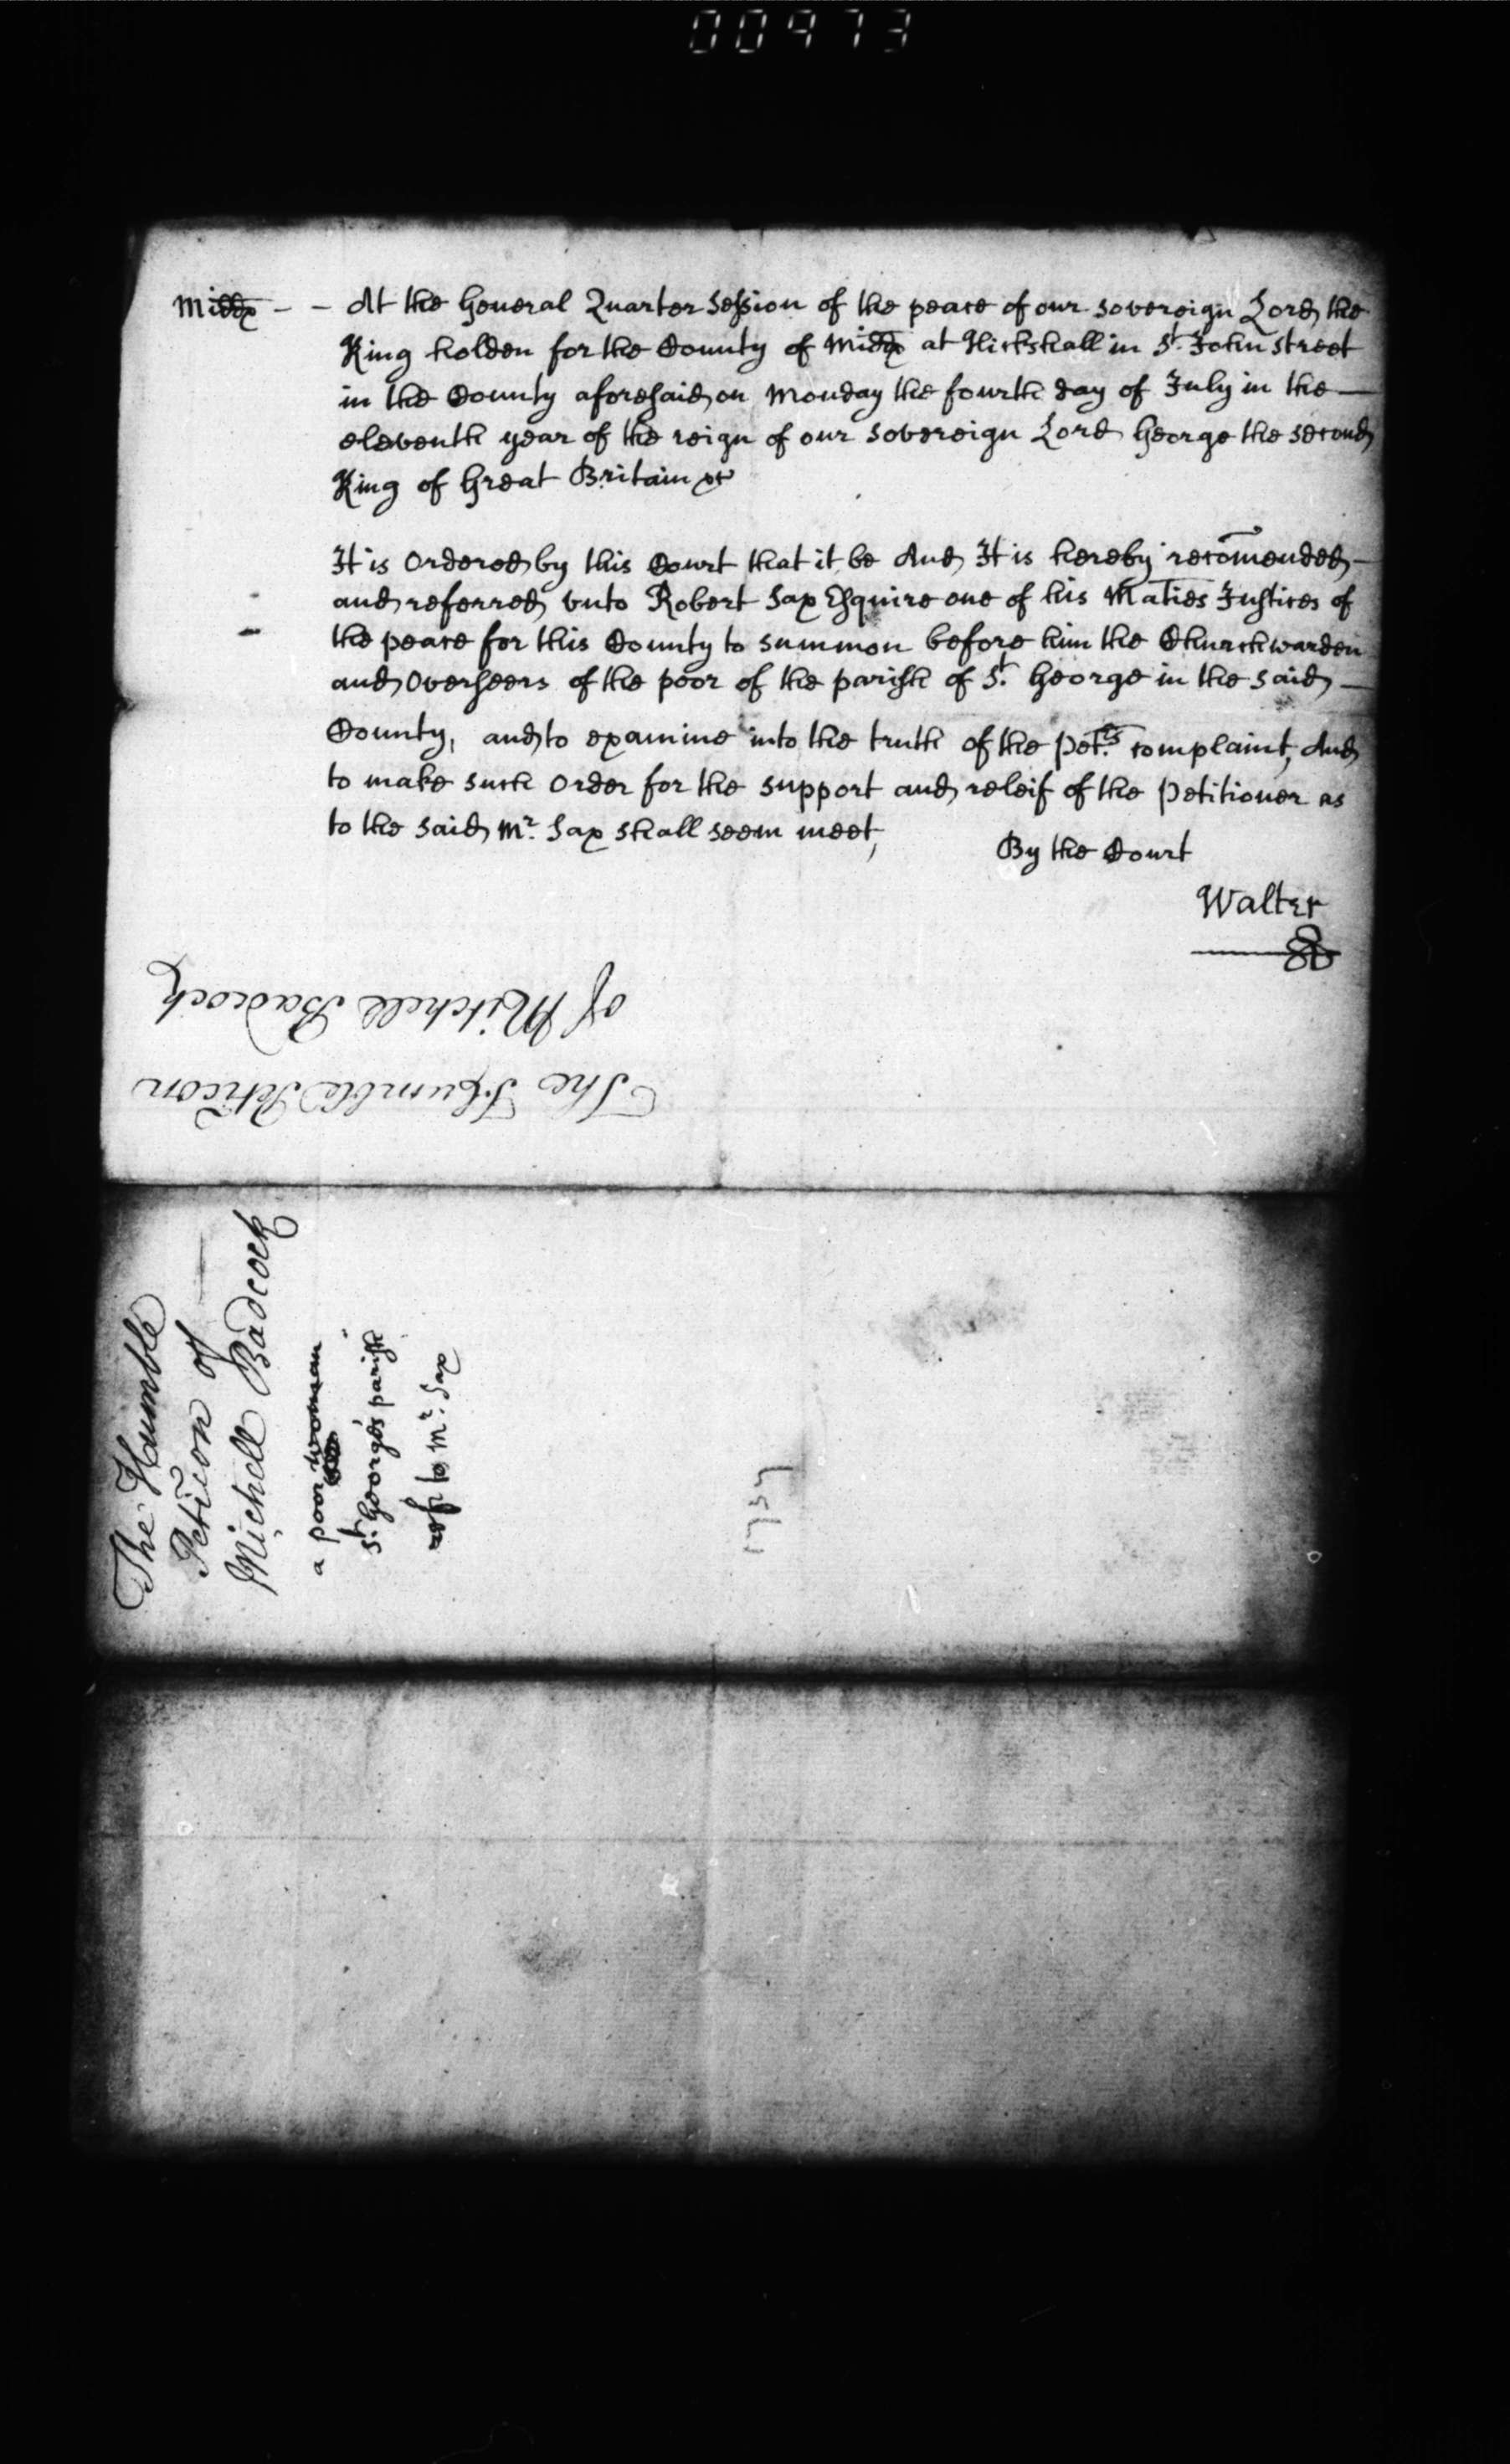 00973
Middx - - At the General Quarter Session of the peace of our Sovereign Lord the
King holden for the County of Middx at Hickshall in St. John Street
in the County aforesaid on Monday the fourth day of July in the —
eleventh year of the reign of our Sovereign Lord George the Second
King of Great Britain &c
It is Ordered by this Court that it be And It is hereby recom̄ended —
and referred vnto Robert Sax Esquire one of his Maties Justices of
the peace for this County to summon before him the Churchwarden
and Overseers of the poor of the parish of St. George in the said —
County, and to examine into the truth of the Petrs. complaint, And
to make such Order for the support and releif of the Petitioner as
to the said Mr. Sax shall seem meet,
By the Court
Walter
The Humble Peticon
of Mitchell Badcock
The Humble
Petic̄on of
Michell Badcock
a poor woman
St. George's parish
refr to Mr. Sax
1737